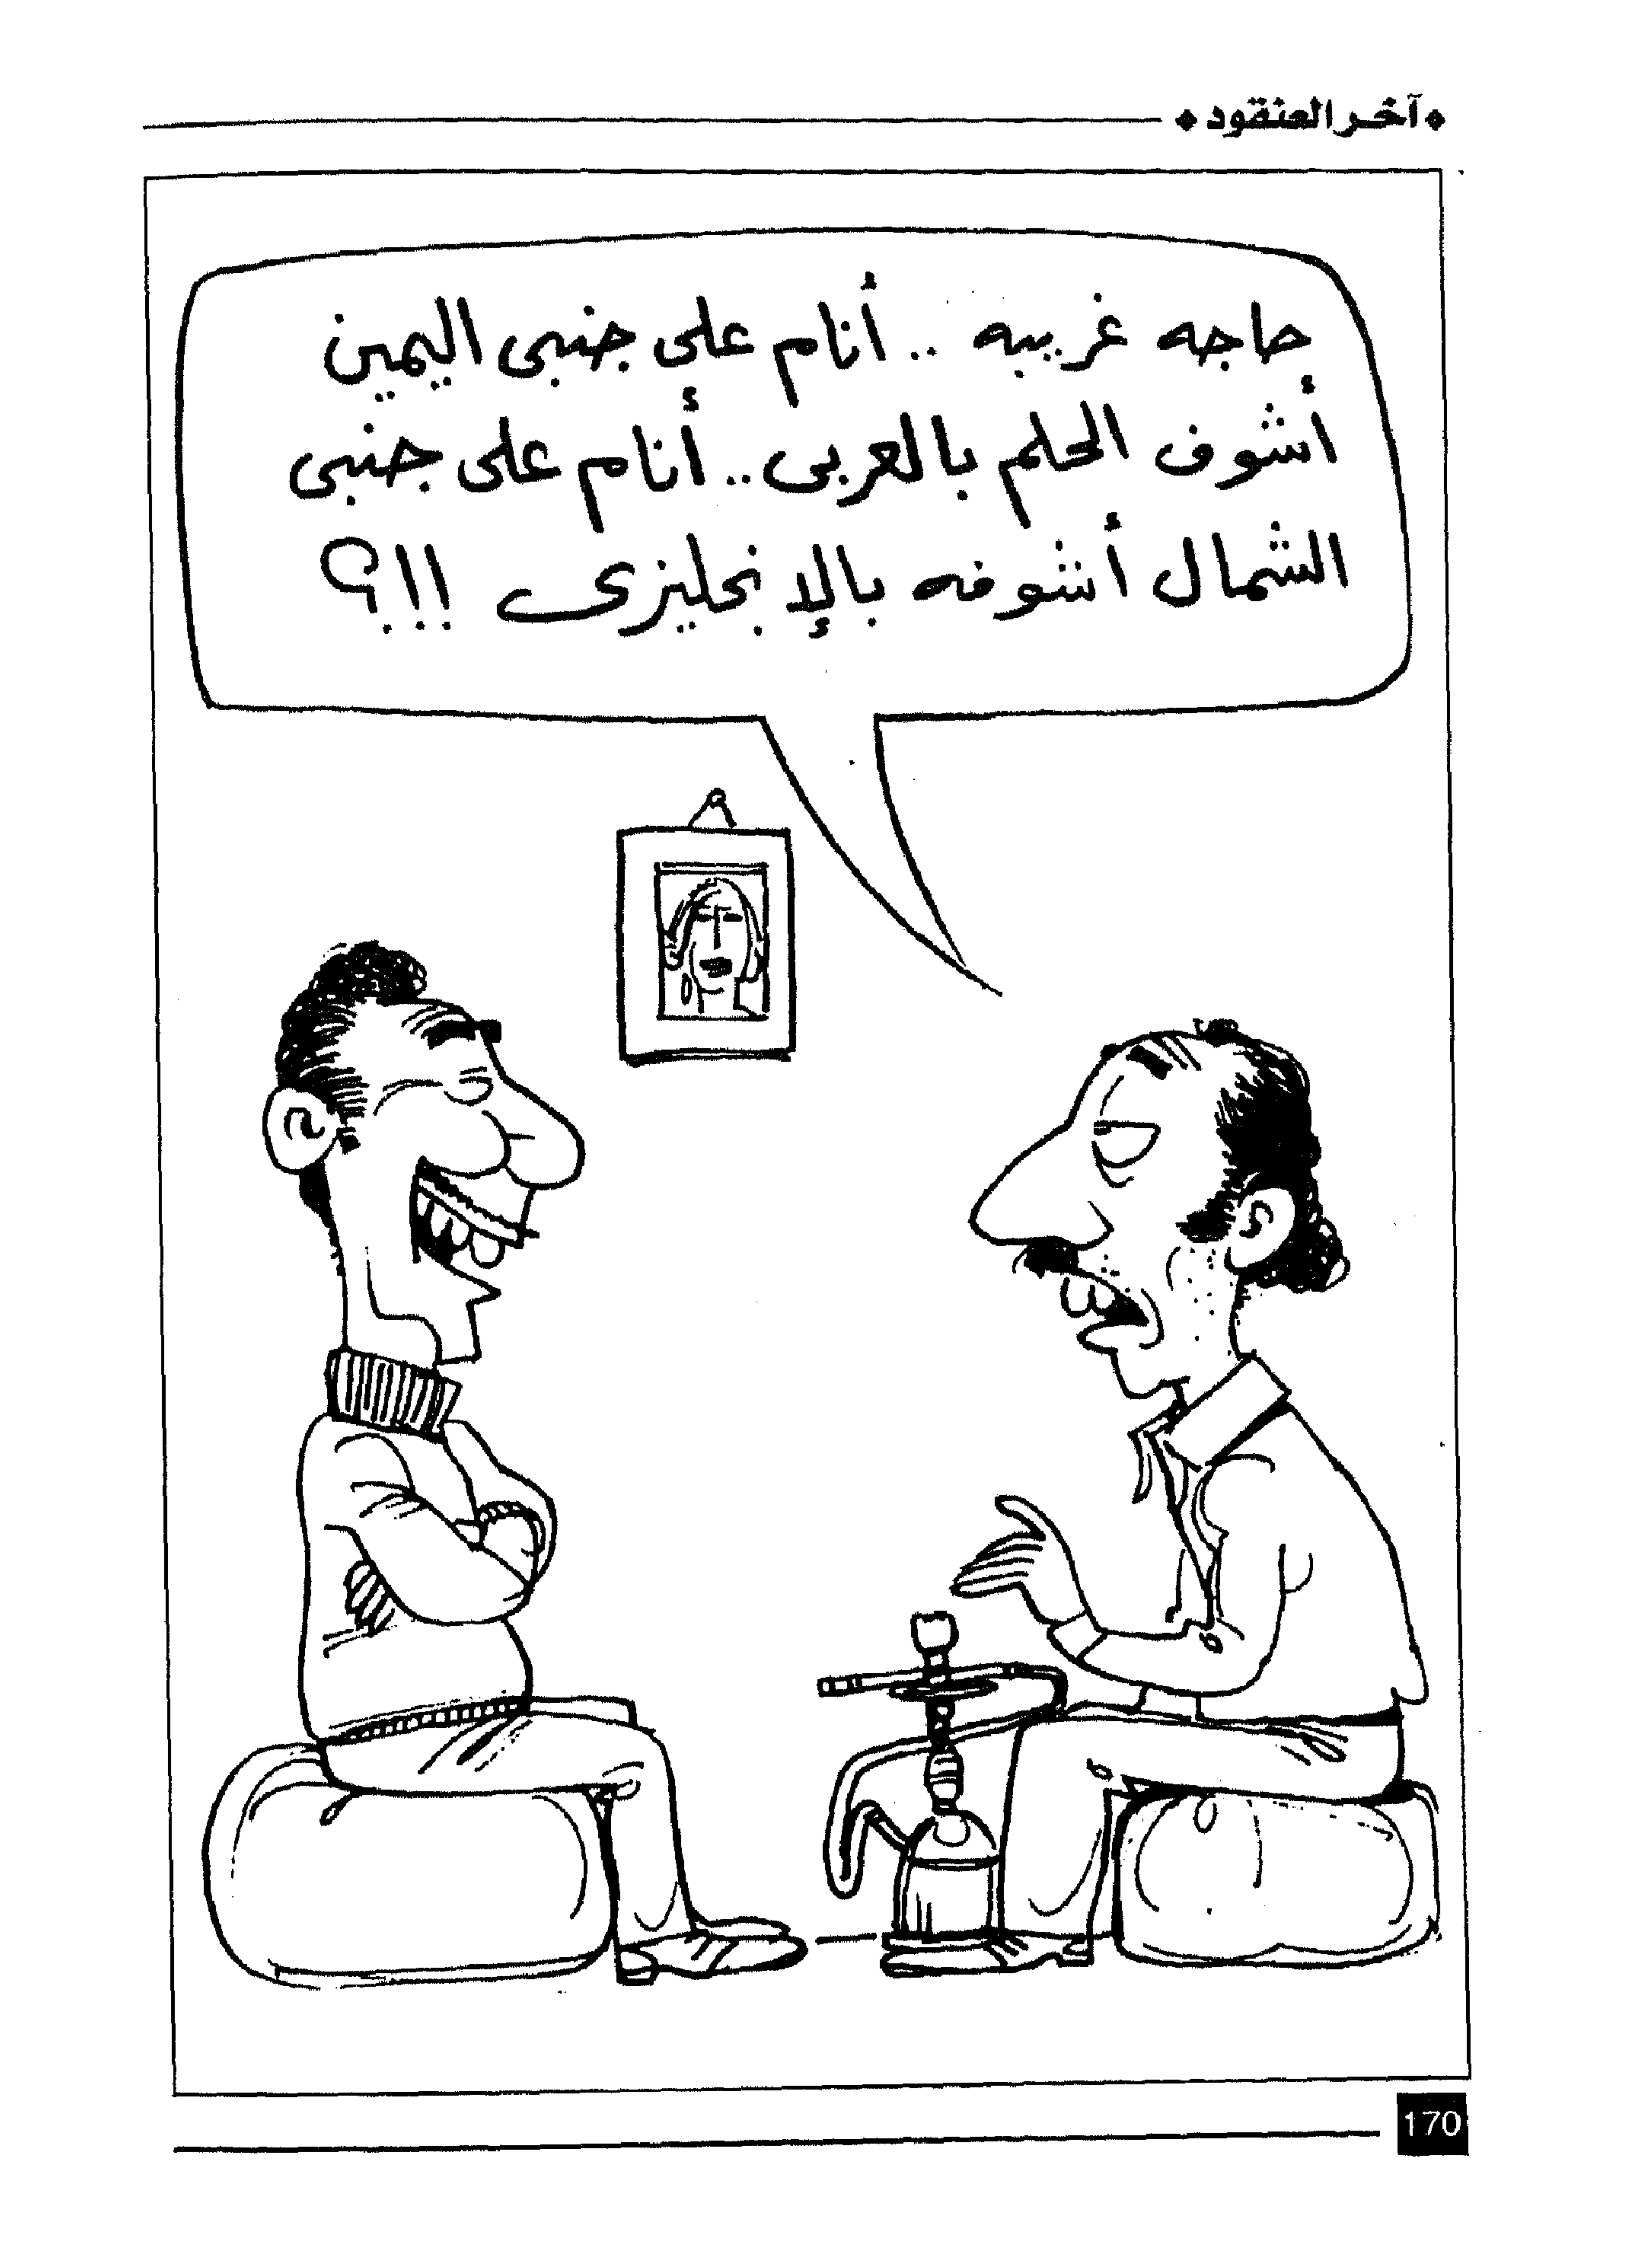 ❖ آخر العنقود ❖
حاجه غريبه .. أنام على جنبى اليمين
أشوف الحلم بالعربى .. أنام على جنبى
الشمال أشوفه بالإنجليزى !!؟
170